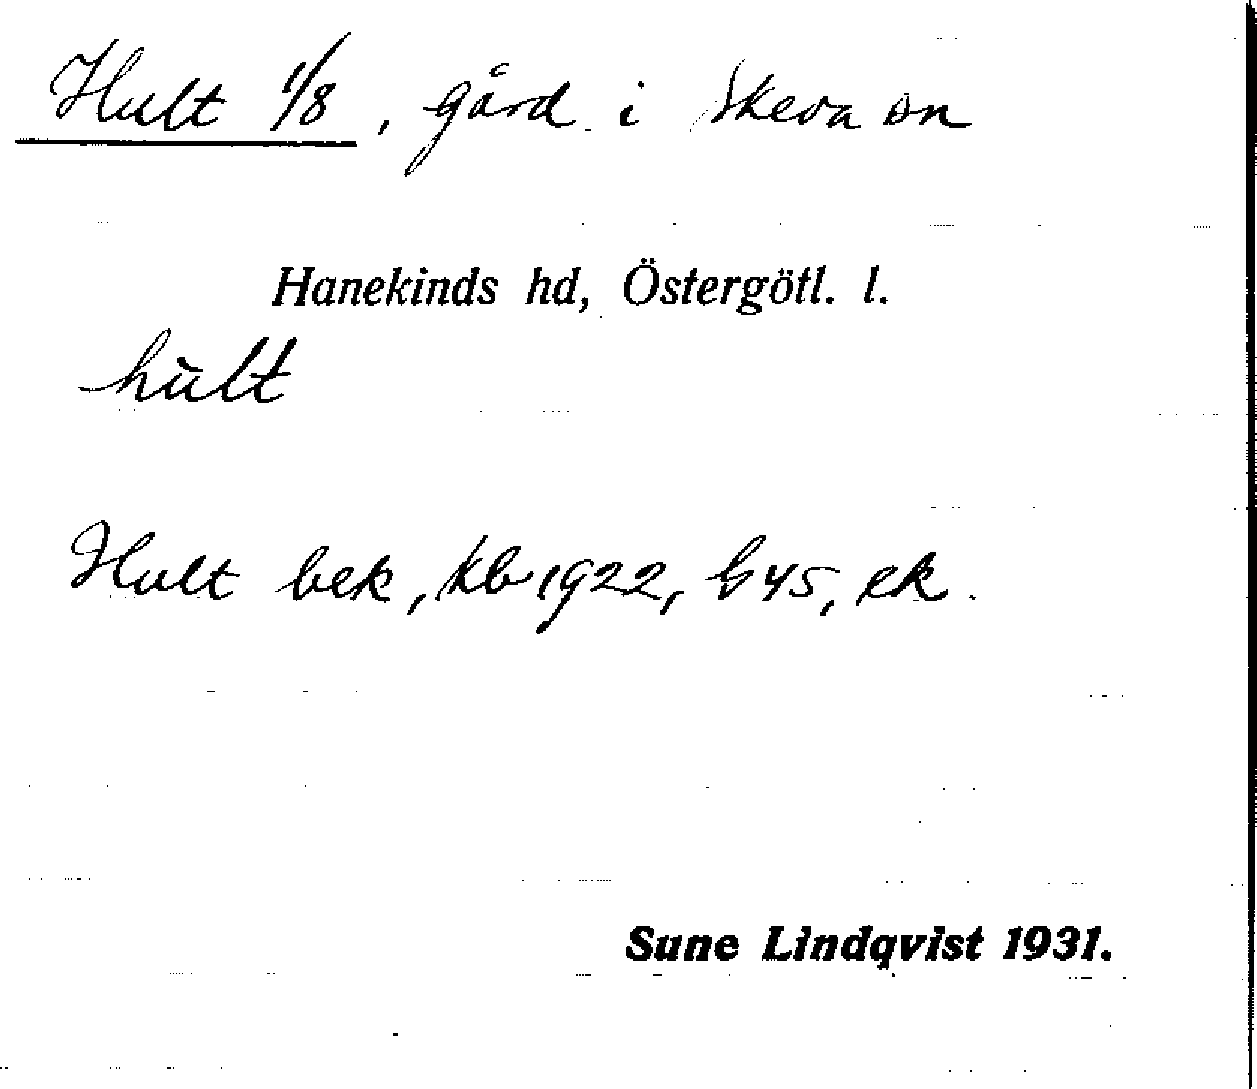 Hult 1/8, gård i Skeda sn
Hanekinds hd, Östergötl. l.
hùlt
Hult bek, kb 1922, G45, ek.
Sune Lindqvist 1931.